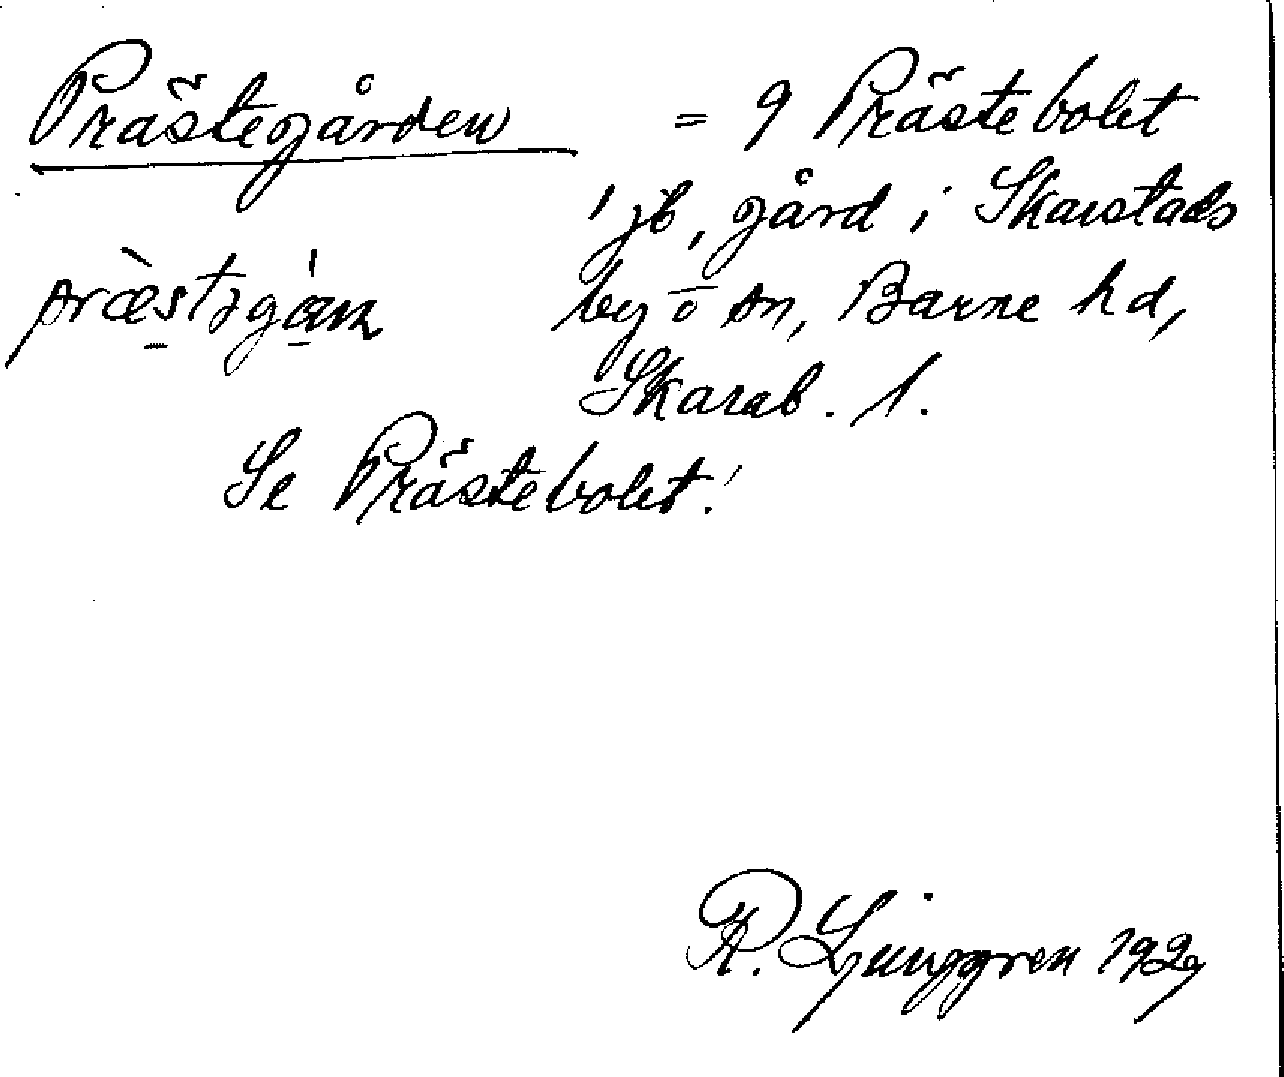 Prästegården = 9 Prästebolet
i jb, gård i Skarstads
by o sn, Barne hd,
Skarab. l.
Se Prästebolet!
R. Ljunggren 1929